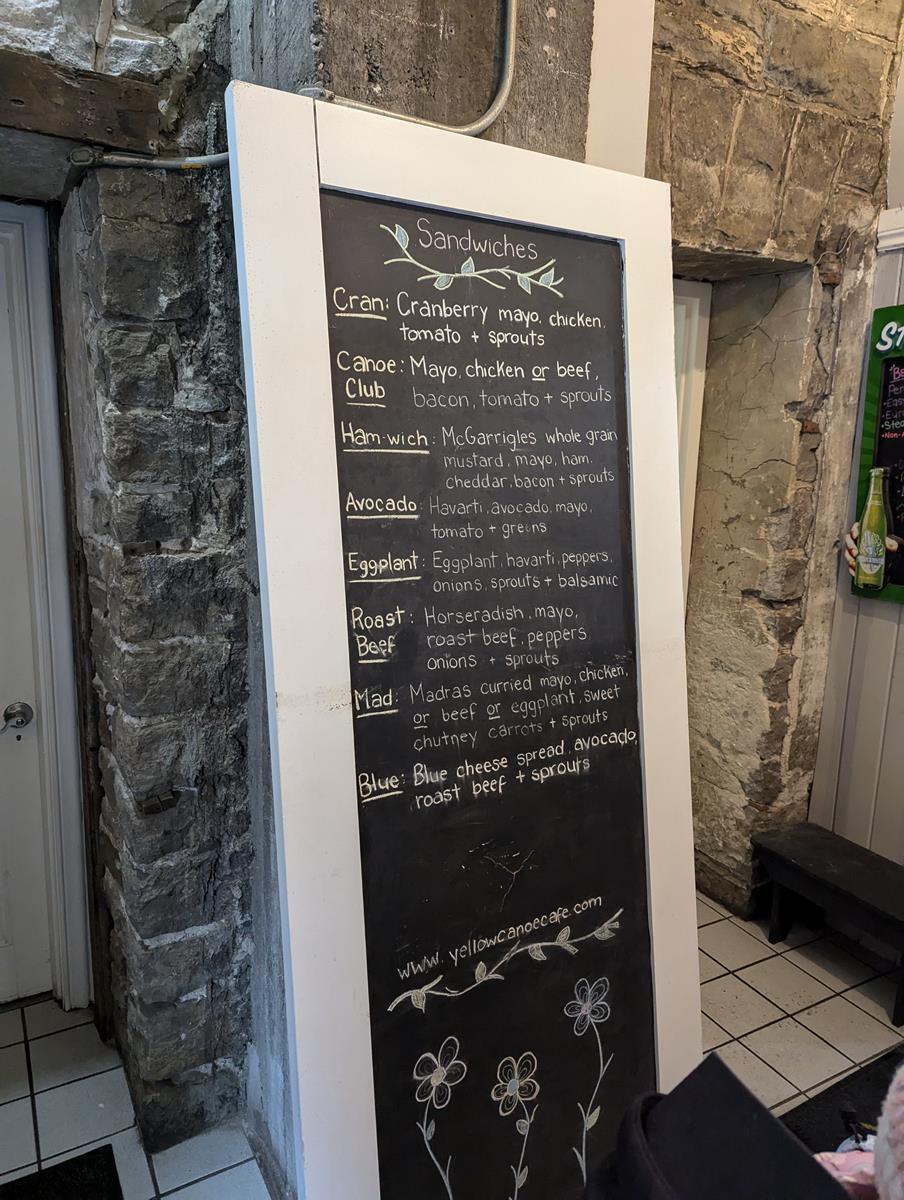 Sandwiches
Cran: Cranberry mayo, chicken,
tomato + sprouts
Canoe Club: Mayo, chicken or beef,
bacon, tomato + sprouts
Ham-wich: McGarrigles whole grain
mustard, mayo, ham,
cheddar, bacon + sprouts
Avocado: Havarti, avocado, mayo,
tomato + greens
Eggplant: Eggplant, havarti, peppers,
onions, sprouts + balsamic
Roast Beef: Horseradish, mayo,
roast beef, peppers
onions + sprouts
Mad: Madras curried mayo, chicken,
or beef or eggplant, sweet
chutney carrots + sprouts
Blue: Blue cheese spread, avocado,
roast beef + sprouts
www.yellowcanoecafe.com